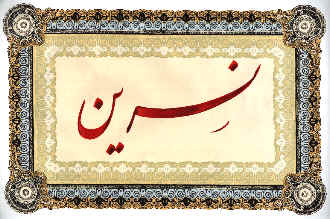 نسرین